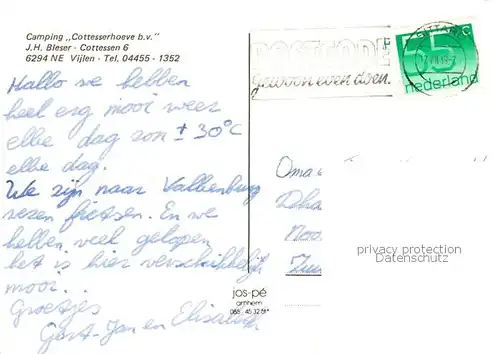 Camping „Cottesserhoeve b.v."
J.H. Bleser - Cottessen 6
6294 NE Vijlen - Tel. 04455 - 1352
Hallo we hebben
heel erg mooi weer
elke dag zon ± 30°C
elke dag.
We zijn naar Valkenburg
wezen fietsen. En we
hebben veel gelopen
het is hier verschikkelijk
mooi..
Groetjes
Gert-Jan en Elisabeth
POSTCODE
gewoon even doen.
SITTARD
45 c
nederland
Oma
privacy protection
Datenschutz
jos-pé
arnhem